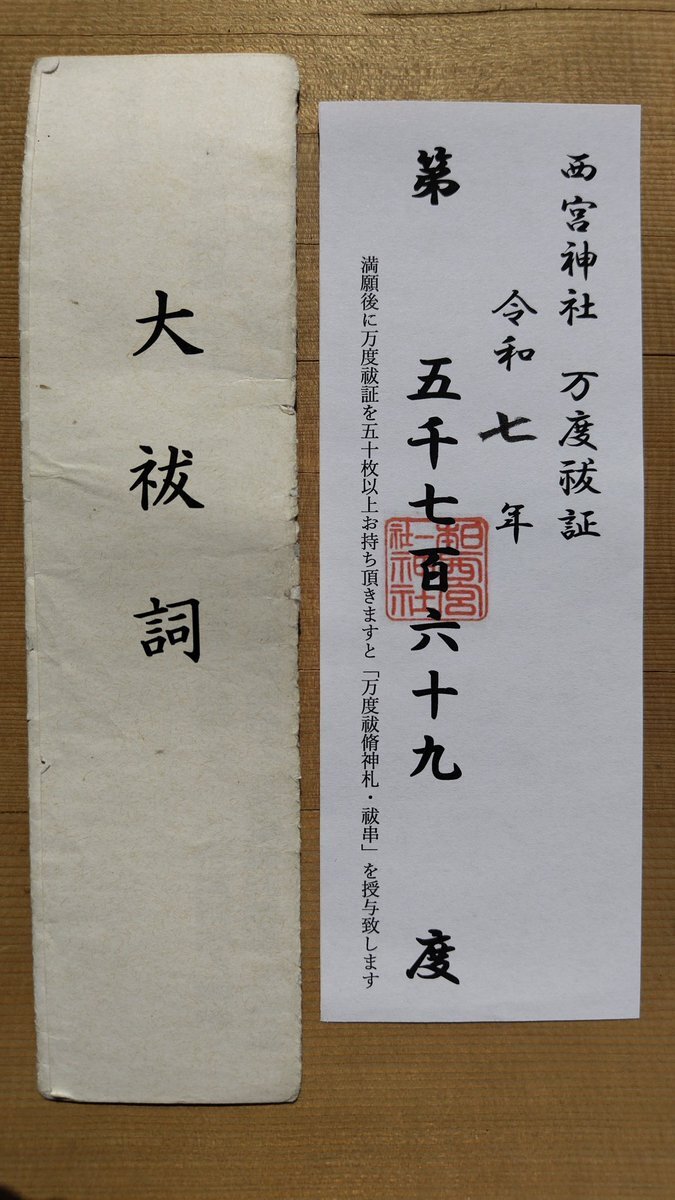 大祓詞
西宮神社 万度祓証
令和七年
第 五千七百六十九 度
満願後に万度祓証を五十枚以上お持ち頂きますと「万度祓脩神札・祓串」を授与致します